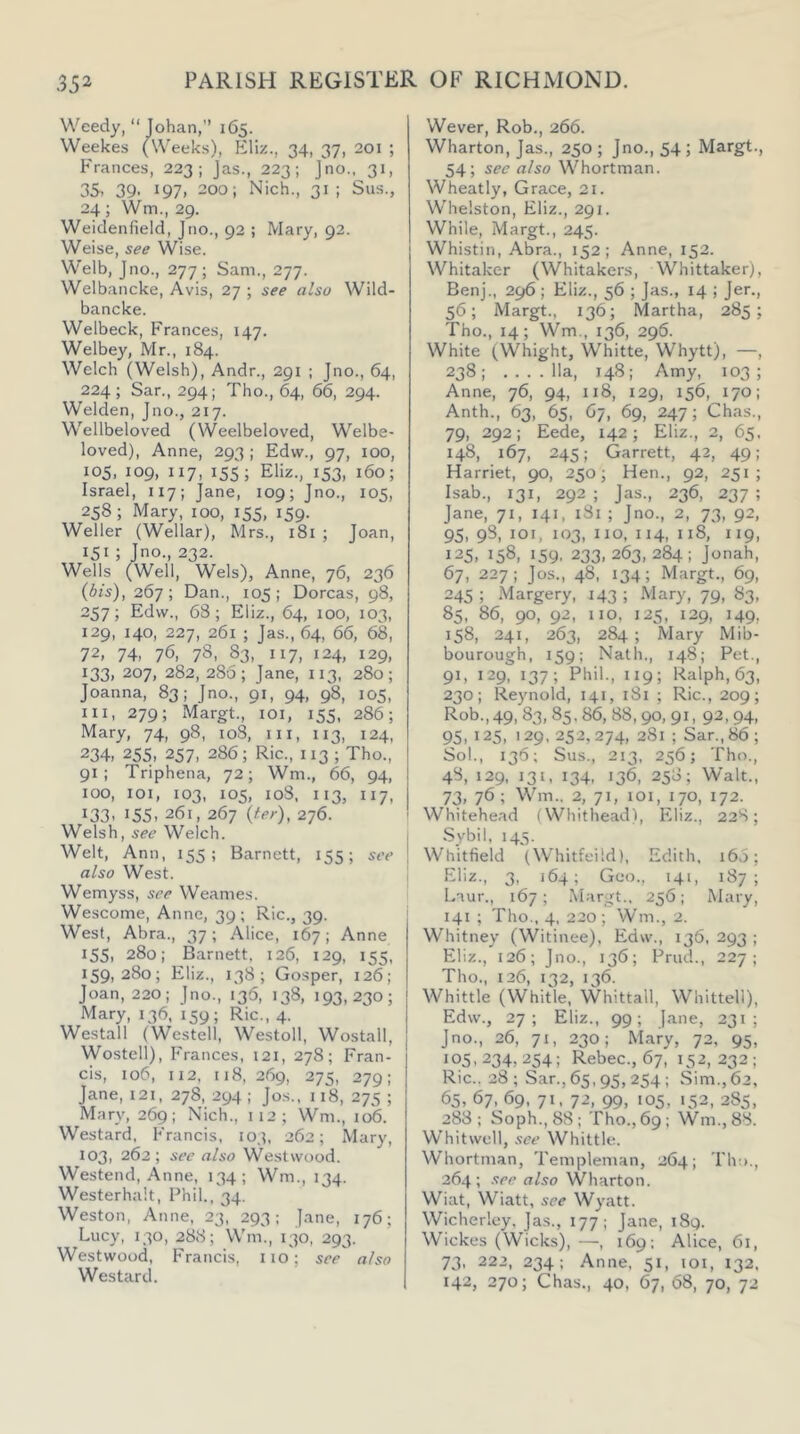 352 PARISH REGISTER OF RICHMOND.
Weedy, “ Johan,” 165.
Weekes (Weeks), Eliz., 34, 37, 201 ;
Frances, 223 ; Jas., 223; Jno., 31,
35, 39, 197, 200; Nich., 31 ; Sus.,
24 ; Wm., 29.
Weidenfield, Jno., 92 ; Mary, 92.
Weise, see Wise.
Welb, Jno., 277; Sam., 277.
Welbancke, Avis, 27 ; see also Wild-
bancke.
Welbeck, Frances, 147.
Welbey, Mr., 184.
Welch (Welsh), Andr., 291 ; Jno., 64,
224 ; Sar., 294; Tho., 64, 66, 294.
Welden, Jno., 217.
Wellbeloved (Weelbeloved, Welbe-
loved), Anne, 293 ; Edw., 97, 100,
105, 109, 117, 155 ; Eliz., 153, 160;
Israel, 117; Jane, 109; Jno., 105,
258 ; Mary, 100, 155, 159.
Weller (Wellar), Mrs., 181 ; Joan,
151 ; Jno., 232.
Wells (Well, Wels), Anne, 76, 236
(bis), 267 ; Dan., 105 ; Dorcas, 98,
257 ; Edw., 68 ; Eliz., 64, 100, 103,
129, 140, 227, 261 ; Jas., 64, 66, 68,
72, 74, 76, 78, 83, 117, 124, 129,
133, 207, 282, 286 ; Jane, 113, 280 ;
Joanna, 83 ; Jno., 91, 94, 98, 105,
111, 279 ; Margt., 101, 155, 286 ;
Mary, 74, 98, 108, 111, 113, 124,
234, 255, 257, 286 ; Ric., 113 ; Tho.,
91 ; Triphena, 72 ; Wm., 66, 94,
100, 101, 103, 105, 108, 113, 117,
133, 155, 261, 267 (ter), 276.
Welsh, see Welch.
Welt, Ann, 155 ; Barnett, 155; see
also West.
Wemyss, see Weames.
Wescome, Anne, 39 ; Ric., 39.
West, Abra., 37 ; Alice, 167 ; Anne
155, 280 ; Barnett, 126, 129, 155,
159, 280 ; Eliz., 138 ; Gosper, 126 ;
Joan, 220 ; Jno., 136, 138, 193, 230 ;
Mary, 136, 159 ; Ric., 4.
Westall (Westell, Westoll, Wostall,
Wostell), Frances, 121, 278 ; Fran-
cis, 106, 112, 118, 269, 275, 279 ;
Jane, 121, 278, 294 ; Jos., 118, 275 ;
Mary, 269 ; Nich., 112 ; Wm., 106.
Westard, Francis, 103, 262 ; Mary,
103, 262 ; see also Westwood.
Westend, Anne, 134 ; Wm., 134.
Westerhalt, Phil., 34.
Weston, Anne, 23, 293 ; Jane, 176 ;
Lucy, 130, 288 ; Wm., 130, 293.
Westwood, Francis, 110 ; see also
Westard.
Wever, Rob., 266.
Wharton, Jas., 250 ; Jno., 54 ; Margt.,
54 ; see also Whortman.
Wheatly, Grace, 21.
Whelston, Eliz., 291.
While, Margt., 245.
Whistin, Abra., 152 ; Anne, 152.
Whitaker (Whitakers, Whittaker),
Benj., 296 ; Eliz., 56 ; Jas., 14 ; Jer.,
56 ; Margt., 136 ; Martha, 285 ;
Tho., 14 ; Wm., 136, 296.
White (Whight, Whitte, Whytt), —,
238 ; . . . . lla, 148 ; Amy, 103 ;
Anne, 76, 94, 118, 129, 156, 170 ;
Anth., 63, 65, 67, 69, 247 ; Chas.,
79, 292 ; Eede, 142 ; Eliz., 2, 65,
148, 167, 245 ; Garrett, 42, 49 ;
Harriet, 90, 250 ; Hen., 92, 251 ;
Isab., 131, 292 ; Jas., 236, 237 ;
Jane, 71, 141, 181 ; Jno., 2, 73, 92,
95, 98, 101, 103, 110, 114, 118, 119,
125, 158, 159, 233, 263, 284 ; Jonah,
67, 227 ; Jos., 48, 134 ; Margt., 69,
245 ; Margery, 143 ; Mary, 79, 83,
85, 86, 90, 92, 110, 125, 129, 149,
158, 241, 263, 284 ; Mary Mib-
bourough, 159 ; Nath., 148 ; Pet.,
91, 129, 137 ; Phil., 119 ; Ralph, 63,
230 ; Reynold, 141, 181 ; Ric., 209 ;
Rob., 49, 83, 85, 86, 88, 90, 91, 92, 94,
95, 125, 129, 252, 274, 281 ; Sar., 86 ;
Sol., 136 ; Sus., 213, 256 ; Tho.,
48, 129, 131, 134, 136, 258 ; Walt.,
73, 76 ; Wm., 2, 71, 101, 170, 172.
Whitehead (Whithead), Eliz., 228 ;
Sybil, 145.
Whitfield (Whitfeild), Edith, 166 ;
Eliz., 3, 164 ; Geo., 141, 187 ;
Laur., 167 ; Margt., 256 ; Mary,
141 ; Tho., 4, 220 ; Wm., 2.
Whitney (Witinee), Edw., 136, 293 ;
Eliz., 126 ; Jno., 136 ; Prud., 227 ;
Tho., 126, 132, 136.
Whittle (Whitle, Whittall, Whittell),
Edw., 27 ; Eliz., 99 ; Jane, 231 ;
Jno., 26, 71, 230 ; Mary, 72, 95,
105, 234, 254 ; Rebec., 67, 152, 232 ;
Ric., 28 ; Sar., 65, 95, 254 ; Sim., 62,
65, 67, 69, 71, 72, 99, 105, 152, 285,
288 ; Soph., 88 ; Tho., 69 ; Wm., 88.
Whitwell, see Whittle.
Whortman, Templeman, 264 ; Tho.,
264 ; see also Wharton.
Wiat, Wiatt, see Wyatt.
Wicherley, Jas., 177 ; Jane, 189.
Wickes (Wicks), —, 169 ; Alice, 61,
73, 222, 234 ; Anne, 51, 101, 132,
142, 270 ; Chas., 40, 67, 68, 70, 72